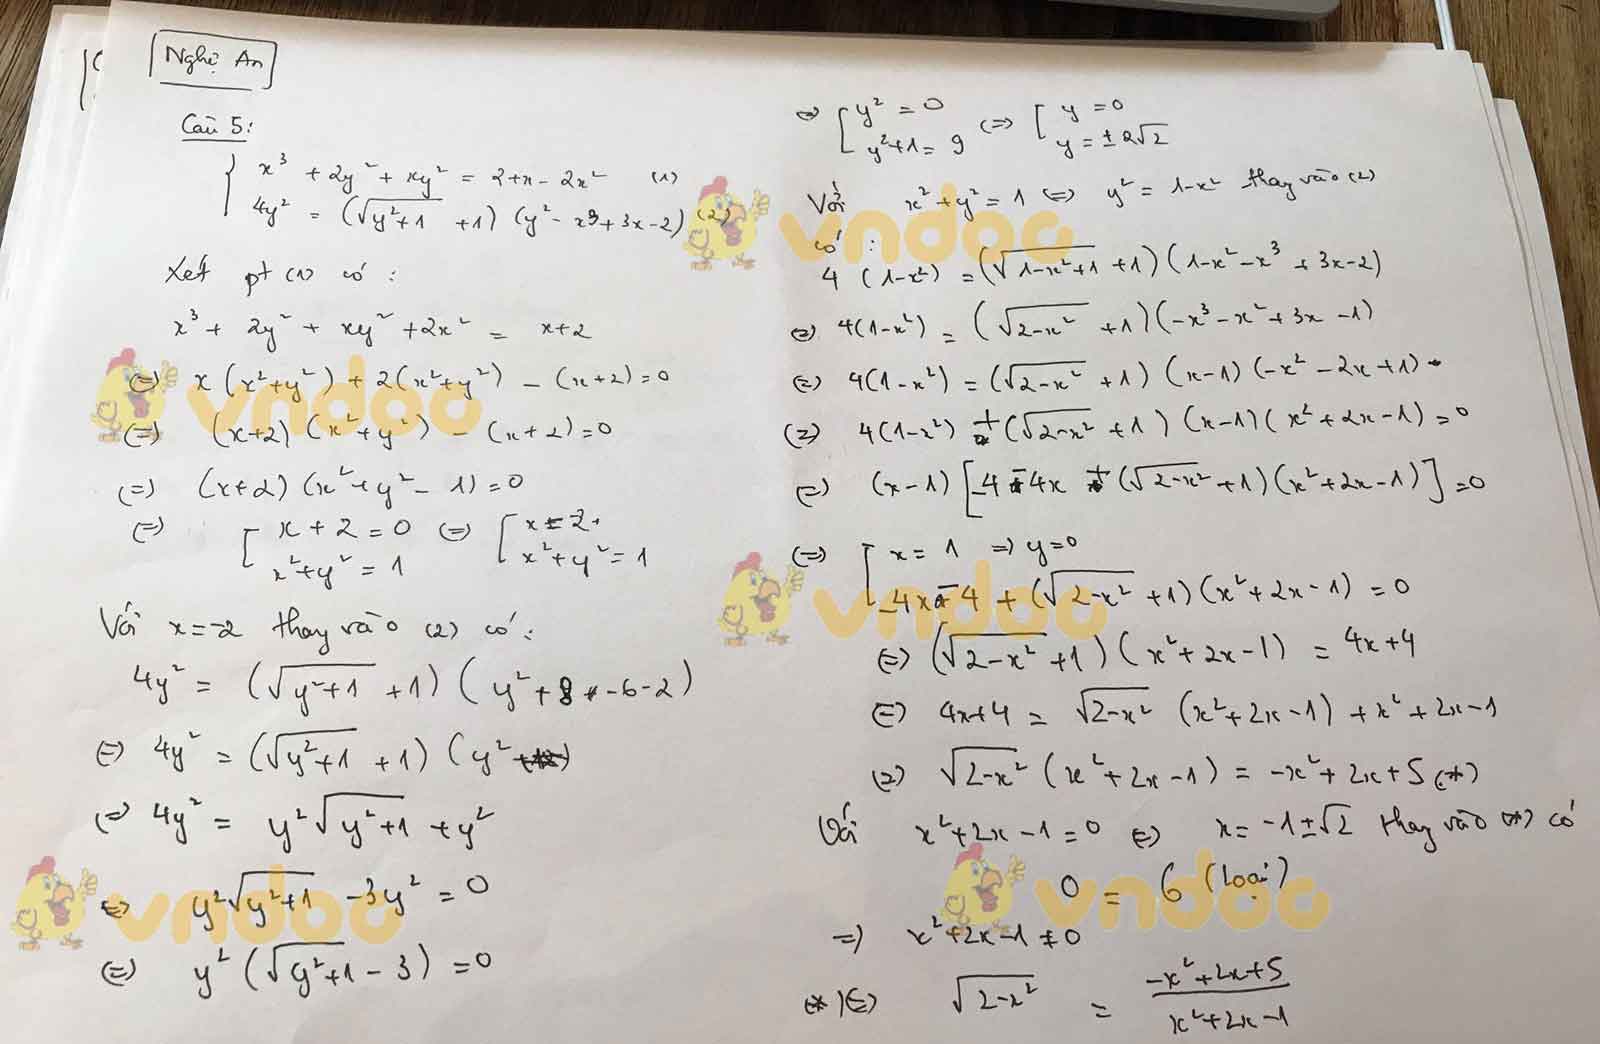 Nghệ An
Câu 5:
{ x³ + 2y² + xy² = 2+x - 2x² (1)
4y² = (√(y²+1) + 1) (y² - x³ + 3x - 2) (2)
Xét pt (1) có :
x³ + 2y² + xy² + 2x² = x+2
(=) x (x²+y²) + 2(x²+y²) - (x+2) = 0
(=) (x+2) (x²+y²) - (x+2) = 0
(=) (x+2) (x²+y² - 1) = 0
(=) [ x + 2 = 0 (=) [ x = -2
x²+y² = 1 x²+y² = 1
Với x = -2 thay vào (2) có :
4y² = (√(y²+1) + 1) ( y² + 8 - 6 - 2 )
(=) 4y² = (√(y²+1) + 1) ( y² )
(=) 4y² = y²√(y²+1) + y²
(=) y²√(y²+1) - 3y² = 0
(=) y² (√(y²+1) - 3) = 0
(=) [ y² = 0 (=) [ y = 0
y²+1 = 9 y = ± 2√2
Với x²+y² = 1 (=) y² = 1-x² thay vào (2)
có :
4 (1-x²) = (√(1-x²+1) + 1) (1-x²-x³ + 3x-2)
(=) 4(1-x²) = (√(2-x²) + 1) (-x³-x²+3x-1)
(=) 4(1-x²) = (√(2-x²) + 1) (x-1) (-x² - 2x+1)
(=) 4(1-x²) + (√(2-x²) + 1) (x-1) (x²+2x-1) = 0
(=) (x-1) [-4 - 4x + (√(2-x²) + 1) (x²+2x-1)] = 0
(=) [ x = 1 => y=0
-4x - 4 + (√(2-x²) + 1) (x²+2x-1) = 0
(=) (√(2-x²) + 1) (x²+2x-1) = 4x+4
(=) 4x+4 = √(2-x²) (x²+2x-1) + x²+2x-1
(=) √(2-x²) (x²+2x-1) = -x²+2x+5 (*)
Với x²+2x-1 = 0 (=) x = -1±√2 thay vào (*) có
0 = 6 (loại)
=> x²+2x-1 ≠ 0
(*) (=) √(2-x²) = (-x²+2x+5)/(x²+2x-1)
vndoc
vndoc
vndoc
vndoc
vndoc